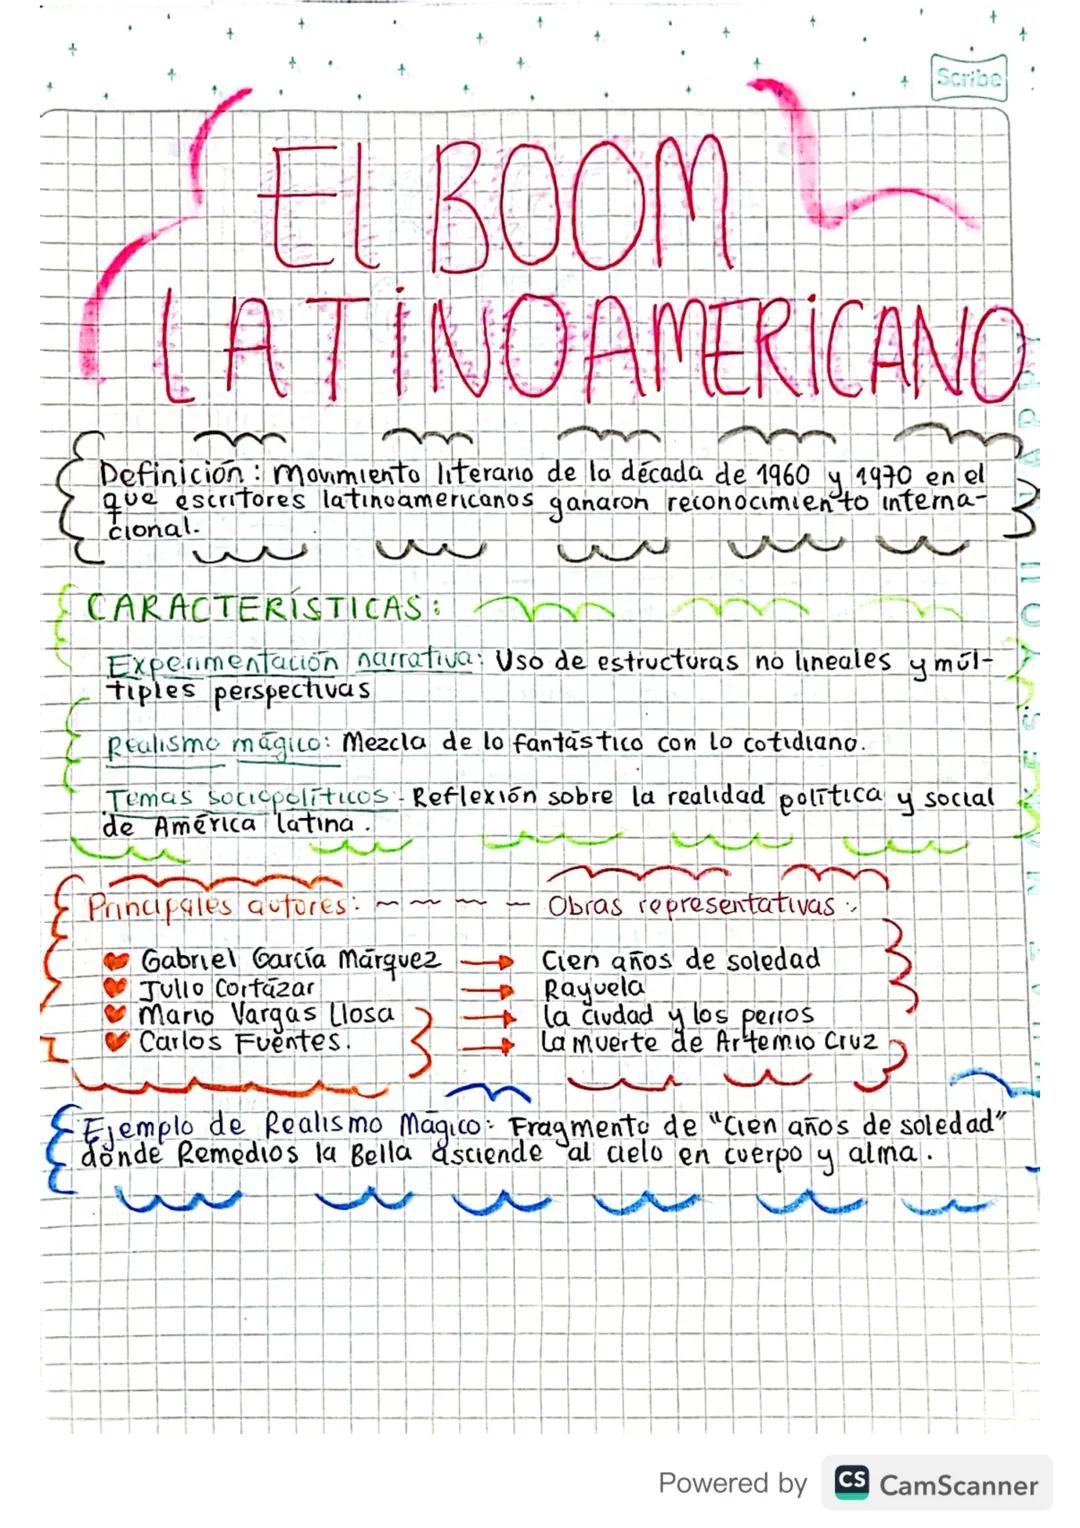 Scribe
El BOOM
LATINOAMERICANO
Definición: Movimiento literario de la década de 1960 y 1970 en el
que escritores latinoamericanos ganaron reconocimiento interna-
cional.
CARACTERÍSTICAS:
Experimentación narrativa: Uso de estructuras no lineales y múl-
tiples perspectivas
Realismo mágico: Mezcla de lo fantástico con lo cotidiano.
Temas sociopolíticos - Reflexión sobre la realidad política y social
de América latina.
Principales autores: Obras representativas:
Gabriel García Márquez → Cien años de soledad
Julio Cortázar → Rayuela
Mario Vargas Llosa → La ciudad y los perros
Carlos Fuentes. → La muerte de Artemio Cruz
Ejemplo de Realismo Mágico: Fragmento de "Cien años de soledad"
donde Remedios la Bella asciende al cielo en cuerpo y alma.
Powered by CS CamScanner